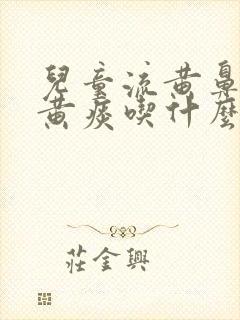 兒童流黃鼻
黃痰喫什麼
莊金興